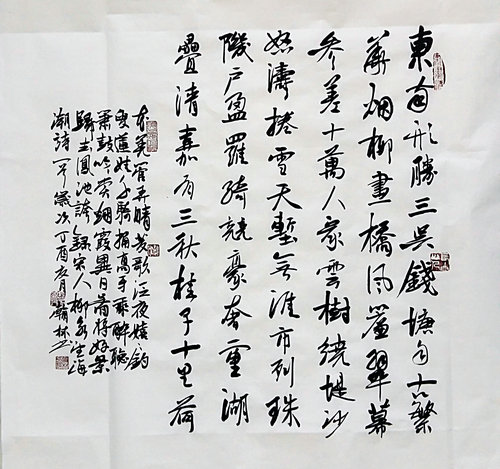 東南形勝三吳錢塘自古繁
華烟柳畫橋風簾翠幕
参差十萬人家雲樹繞堤沙
怒濤捲雪天塹無涯市列珠
璣户盈羅綺競豪奢重湖
疊清嘉有三秋桂子十里荷
花羌管弄晴菱歌泛夜嬉釣
叟蓮娃千騎擁高牙乘醉聽
簫鼓吟賞烟霞異日圖將好景
歸去鳳池誇錄宋人柳永望海
潮詩一首歲次丁酉月翰林